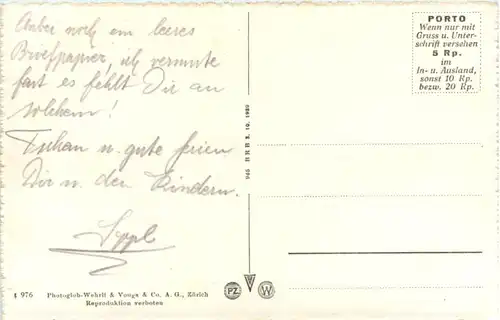 Anbei noch ein leeres
Briefpapier, ich vermute
fast es fehlt Dir an
solchem!
Tschau u. gute ferien
Dir u. den Kindern.
Seppl
PORTO
Wenn nur mit
Gruss u. Unter-
schrift versehen
5 Rp.
im
In- u. Ausland,
sonst 10 Rp.
bezw. 20 Rp.
BRB 3. 10. 1939
976 Photoglob-Wehrli & Vouga & Co. A. G., Zürich
Reproduktion verboten
PZ
W